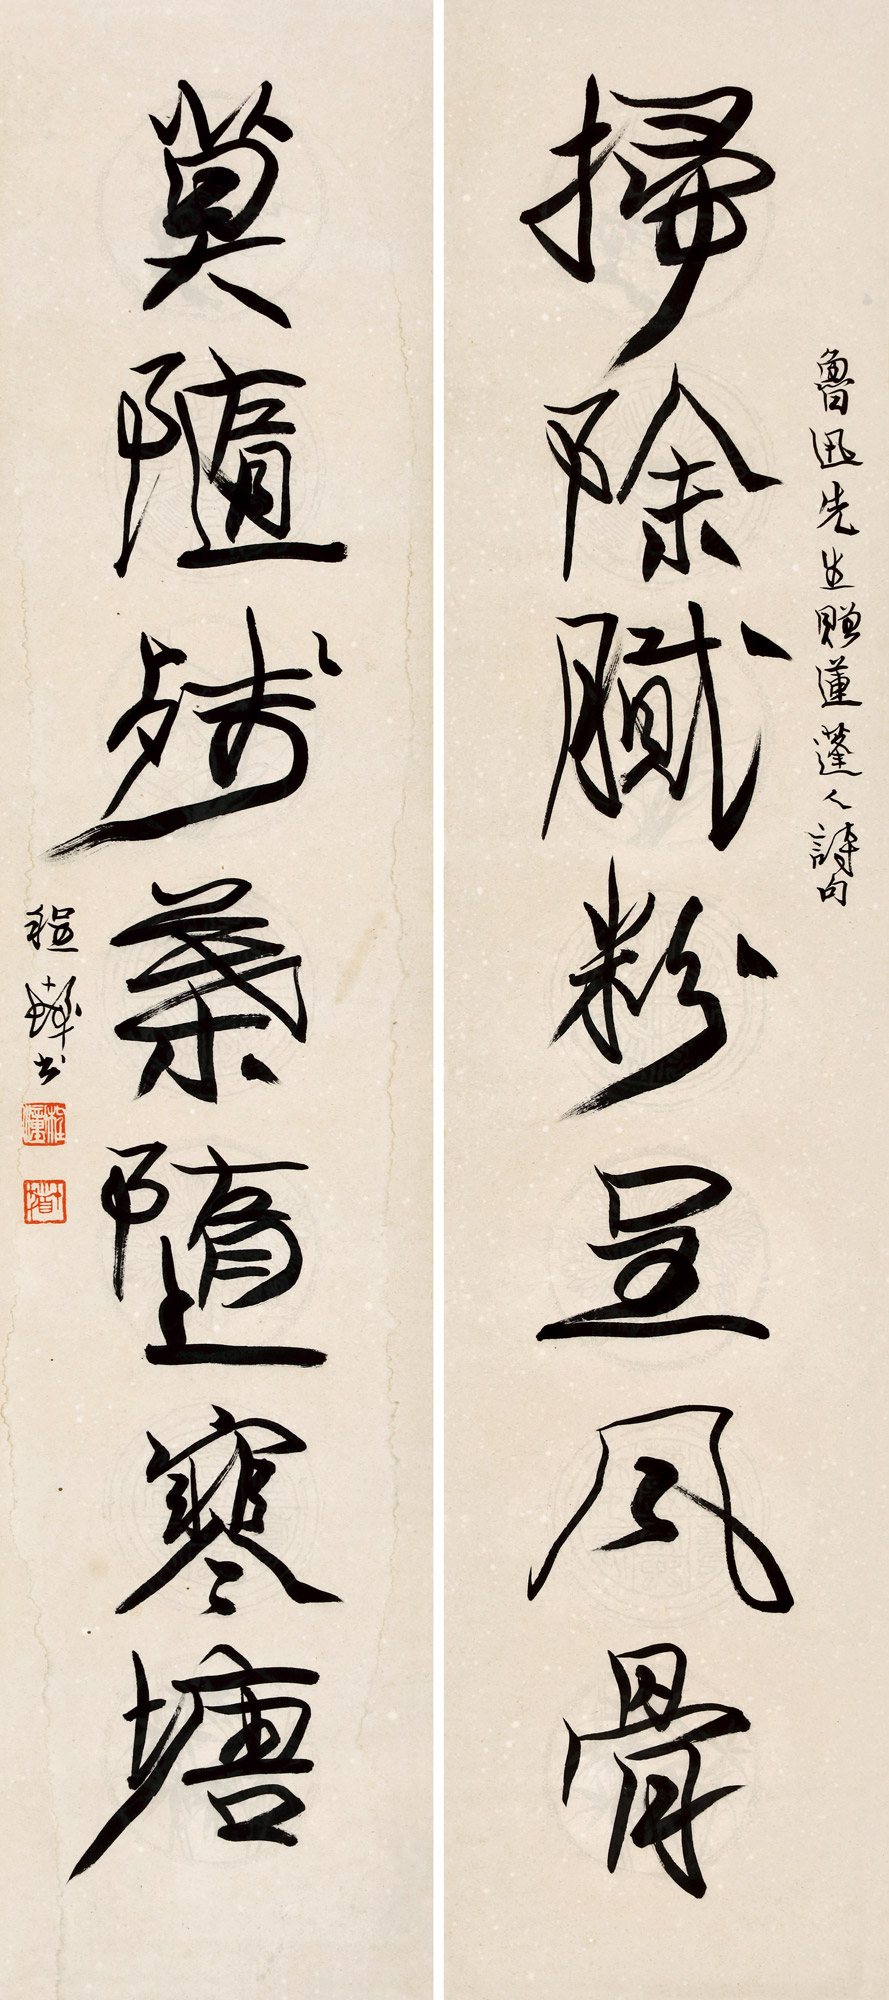 魯迅先生贈蓮蓬人詩句
掃除膩粉呈風骨
莫隨殘葉墮寒塘
程十髮書
程潼